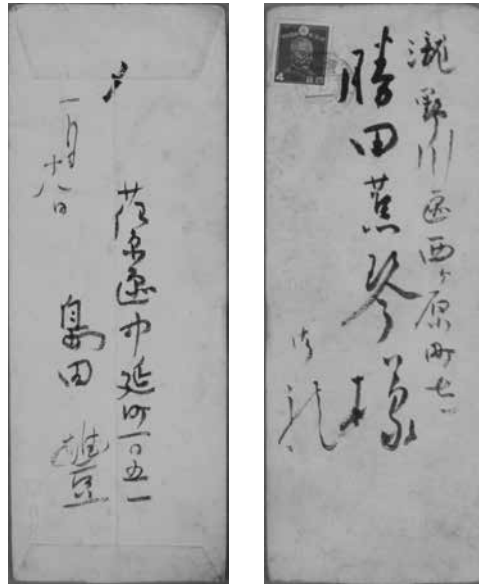 一月廿八日
荏原區中延町一〇五一
島田 豊
4
瀧野川區西ヶ原町七一
勝田蕉琴様
御礼